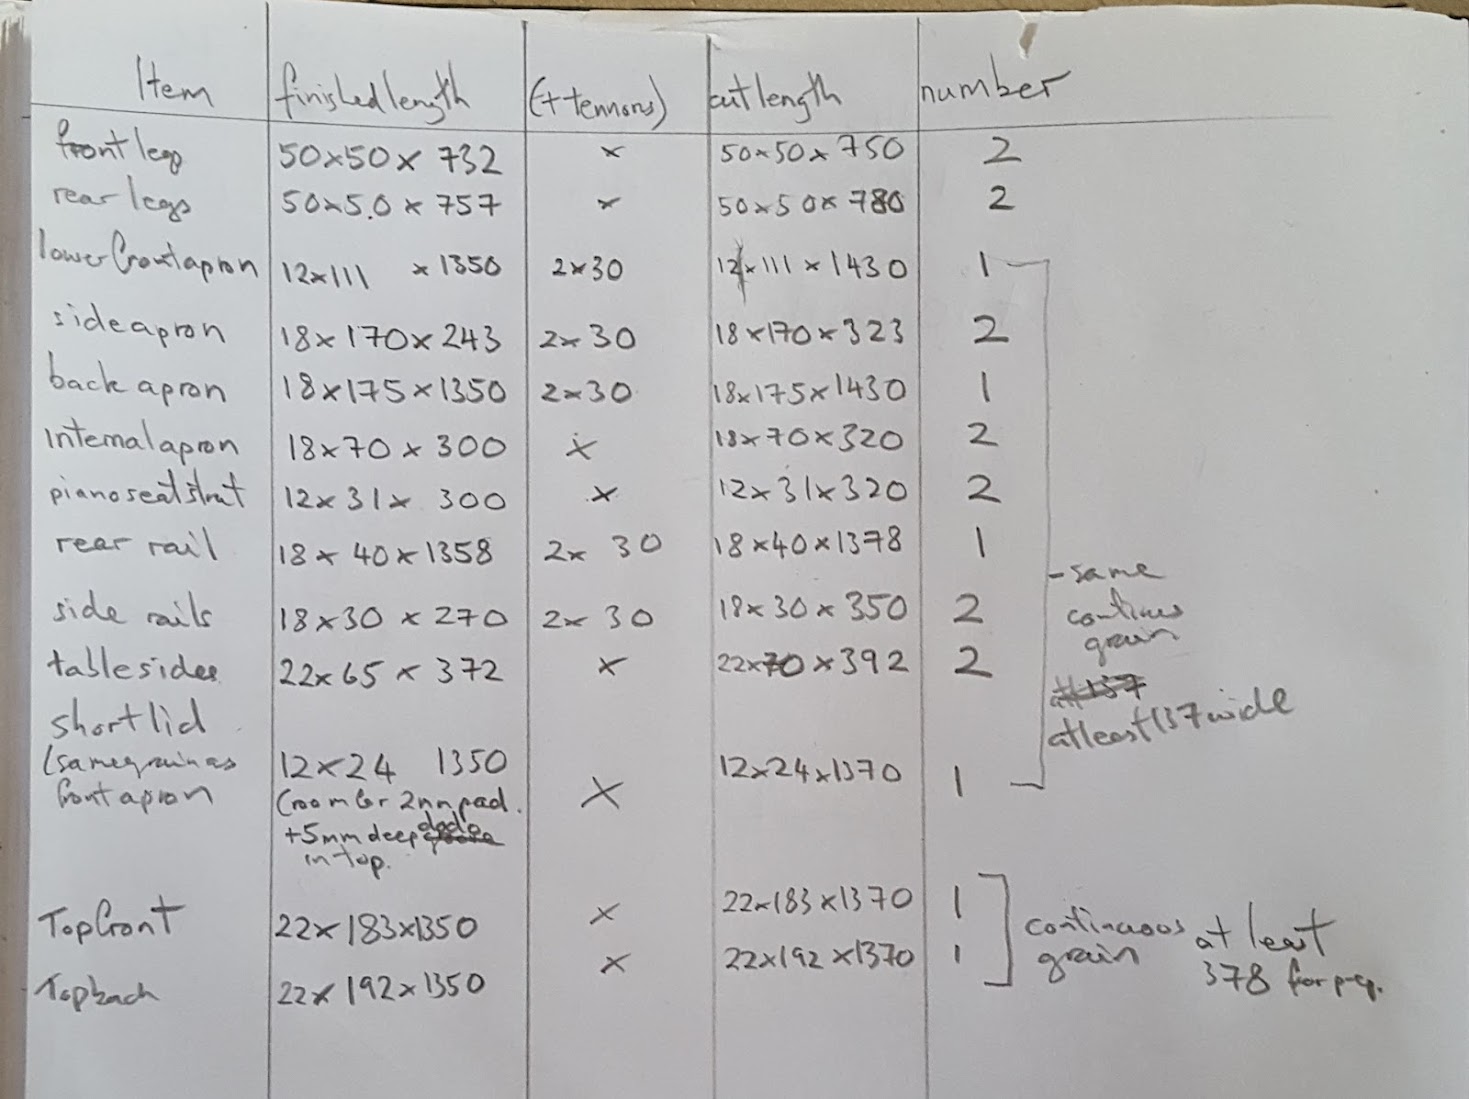 Item finished length (+ tennons) cut length number
front leg 50x50x 732 x 50x50x750 2
rear legs 50x5.0x757 x 50x50x780 2
lower front apron 12x111 x1350 2x30 12x111x1430 1
side apron 18x170x243 2x30 18x170x323 2
back apron 18x175x1350 2x30 18x175x1430 1
internal apron 18x70x300 x 18x70x320 2
piano seat strut 12x31x 300 x 12x31x320 2
rear rail 18x40x1358 2x 30 18x40x1378 1
-same
side rails 18x30x270 2x 30 18x30x350 2
grain
table sides 22x65x372 x 22x70x392 2
at least 137 wide
short lid
(same grain as 12x24 1350 X 12x24x1370 1
front apron (room for 2mm pad.
+5mm deep dado
in top.
Top front 22x183x1350 x 22x183x1370 1
continuous at least
grain 378 for prep.
Top back 22x192x1350 x 22x192x1370 1